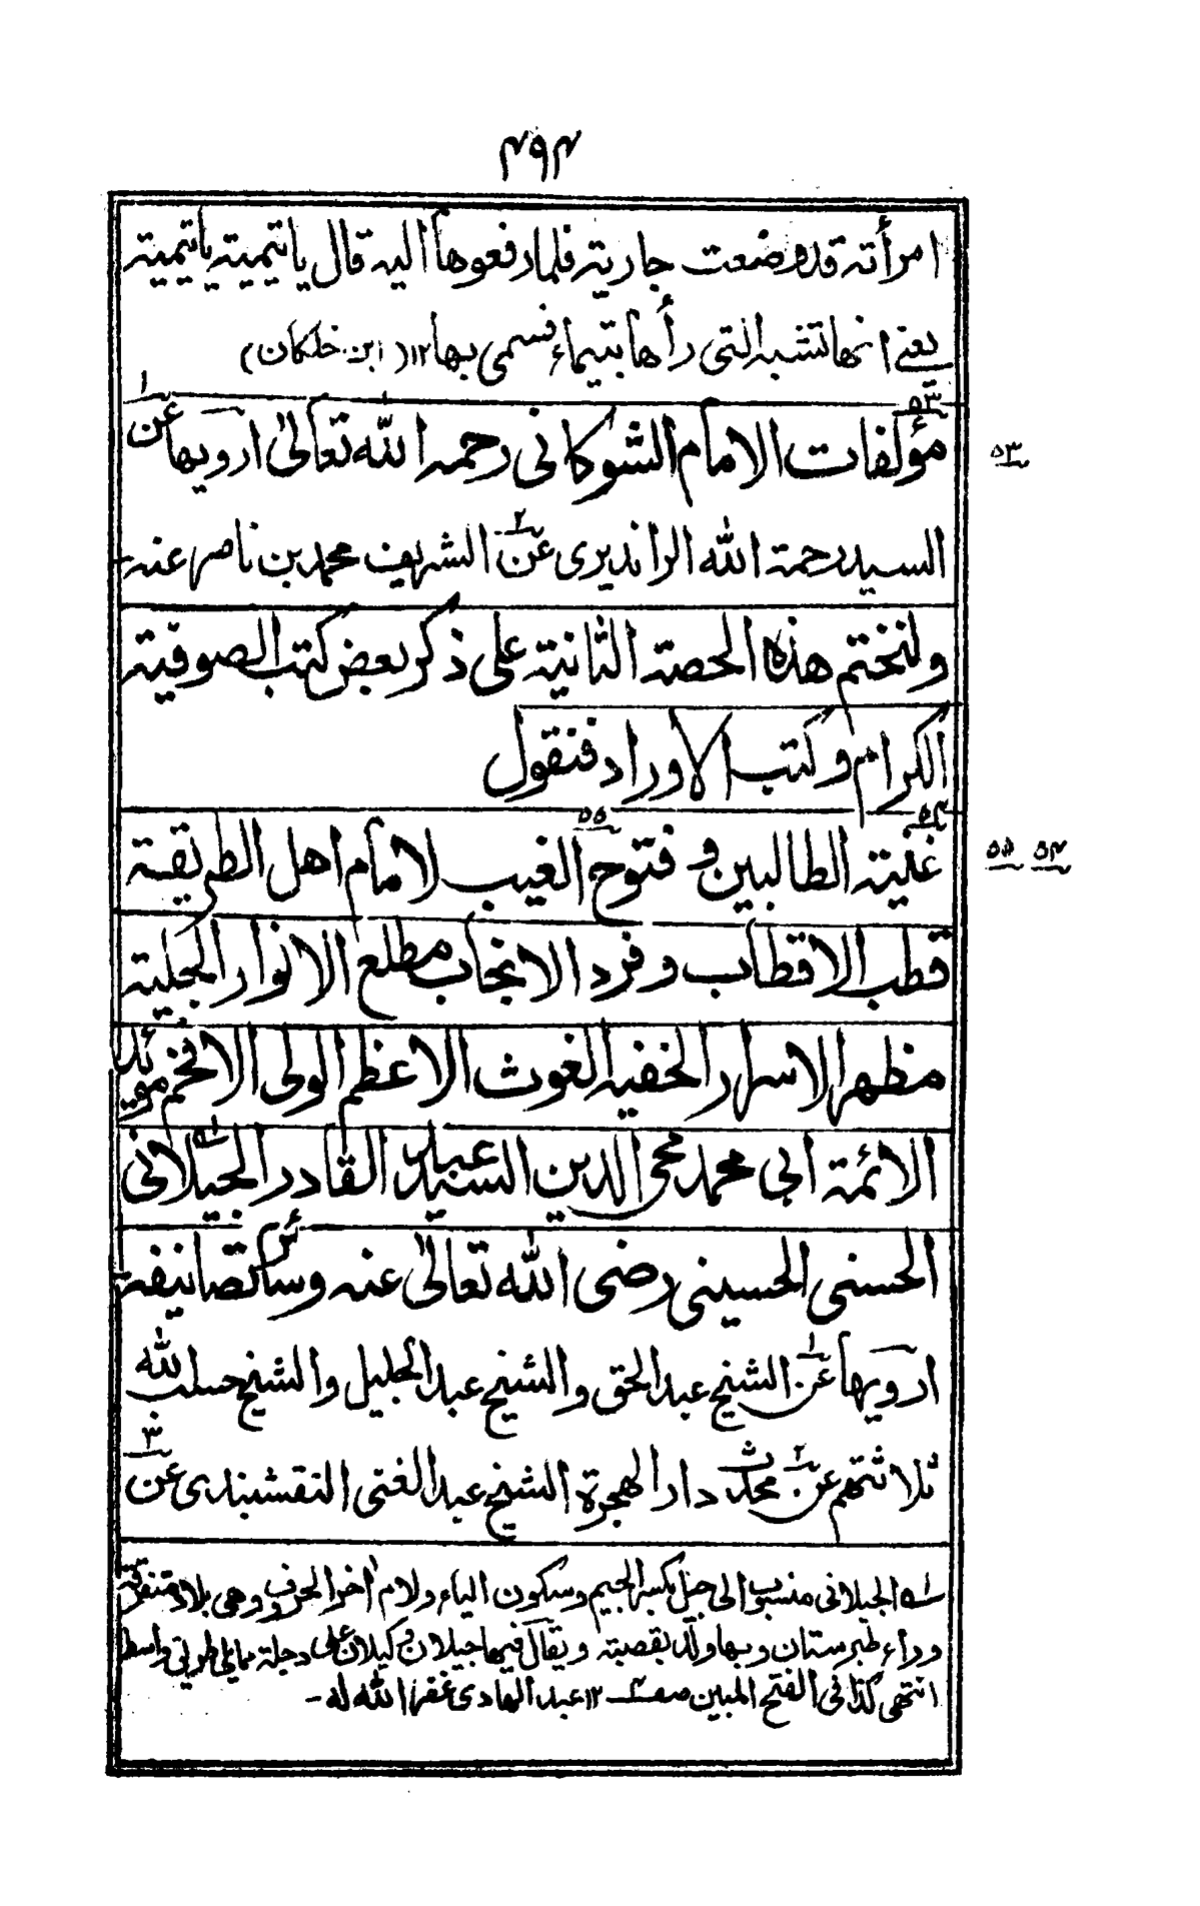 ۴۹۴
امرأته قد وضعت جارية فلما رفعوها اليه قال يا تيمية يا تيمية
يعني انها تشبه التي رأها بتيماء فسمى بها ۱۲ (ابن خلكان)
۵۳ مؤلفات الامام الشوكانى رحمه الله تعالىٰ ارويها عن ۱
۵۳
السيد رحمة الله الرانديرى عن ۲ الشريف محمد بن ناصر عنه
ولنختم هذه الحصة الثانية على ذكر بعض كتب الصوفية
الكرام وكتب الاوراد فنقول
۵۴ غنية الطالبين و ۵۵ فتوح الغيب لامام اهل الطريقة
۵۴ ۵۵
قطب الاقطاب وفرد الانجاب مطلع الانوار الجلية
مظهر الاسرار الخفية الغوث الاعظم الولى الافخم مؤيد
الائمة ابى محمد محى الدين السيد عبد القادر الجيلانى ۱ه
الحسنى الحسينى رضى الله تعالىٰ عنه وسائر تصانيفه
ارويها عن ۱ الشيخ عبد الحق والشيخ عبد الجليل والشيخ حسب الله
ثلاثتهم عن ۲ محدث دار الهجرة الشيخ عبد الغنى النقشبندى عن ۳
۱ه الجيلانى منسوب الى جيل بكسر الجيم وسكون الياء ولام اخر الحروف وهى بلاد متفرقة
وراء طبرستان وبها ولد بقصبة ويقال فيها جيلان وكيلان على دجلة مما يلى طريق واسط
انتهى كذا فى الفتح المبين صـ ۱۲ عبد الهادى غفر الله له -